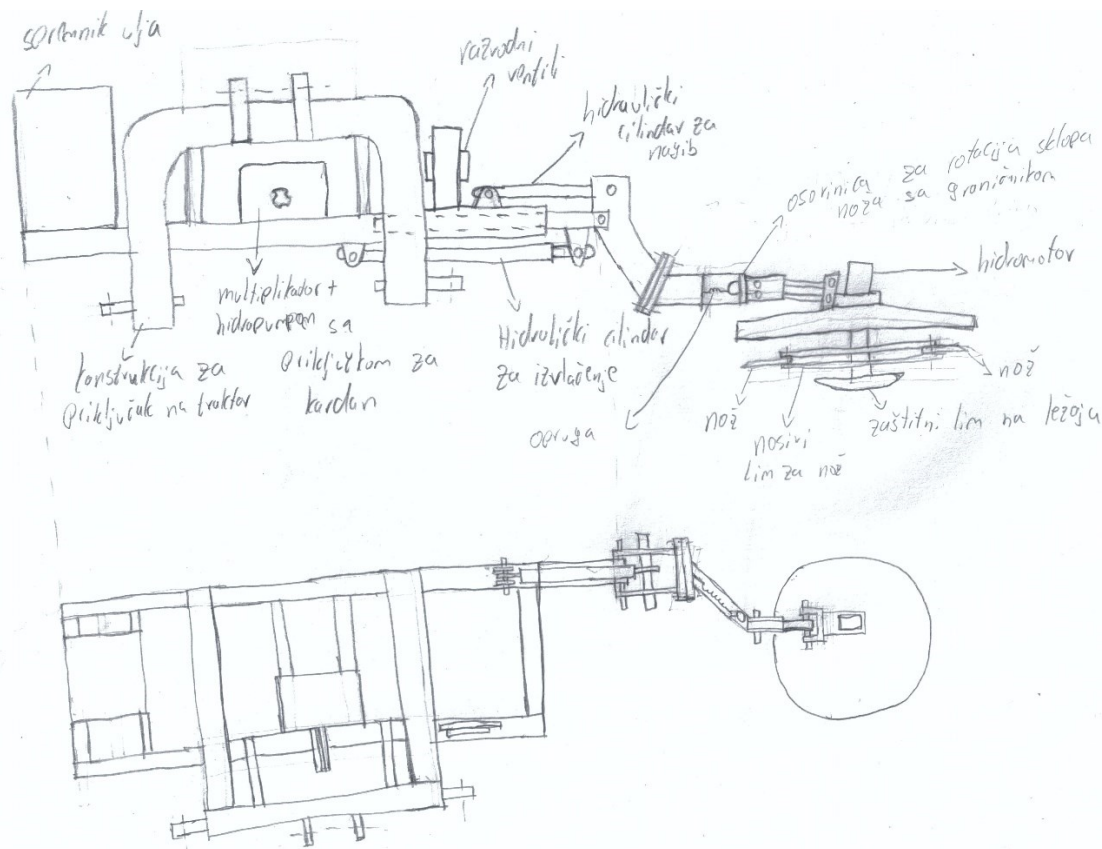 spremnik ulja
razvodni
ventili
hidraulički
cilindar za
nagib
osovinica za rotacija sklopa
noža sa graničnikom
hidromotor
multiplikator +
hidropumpom sa
priključkom za
kardan
konstrukcija za
priključak na traktor
Hidraulički cilindar
za izvlačenje
opruga
nož
nosivi
lim za nož
zaštitni lim na ležaja
nož